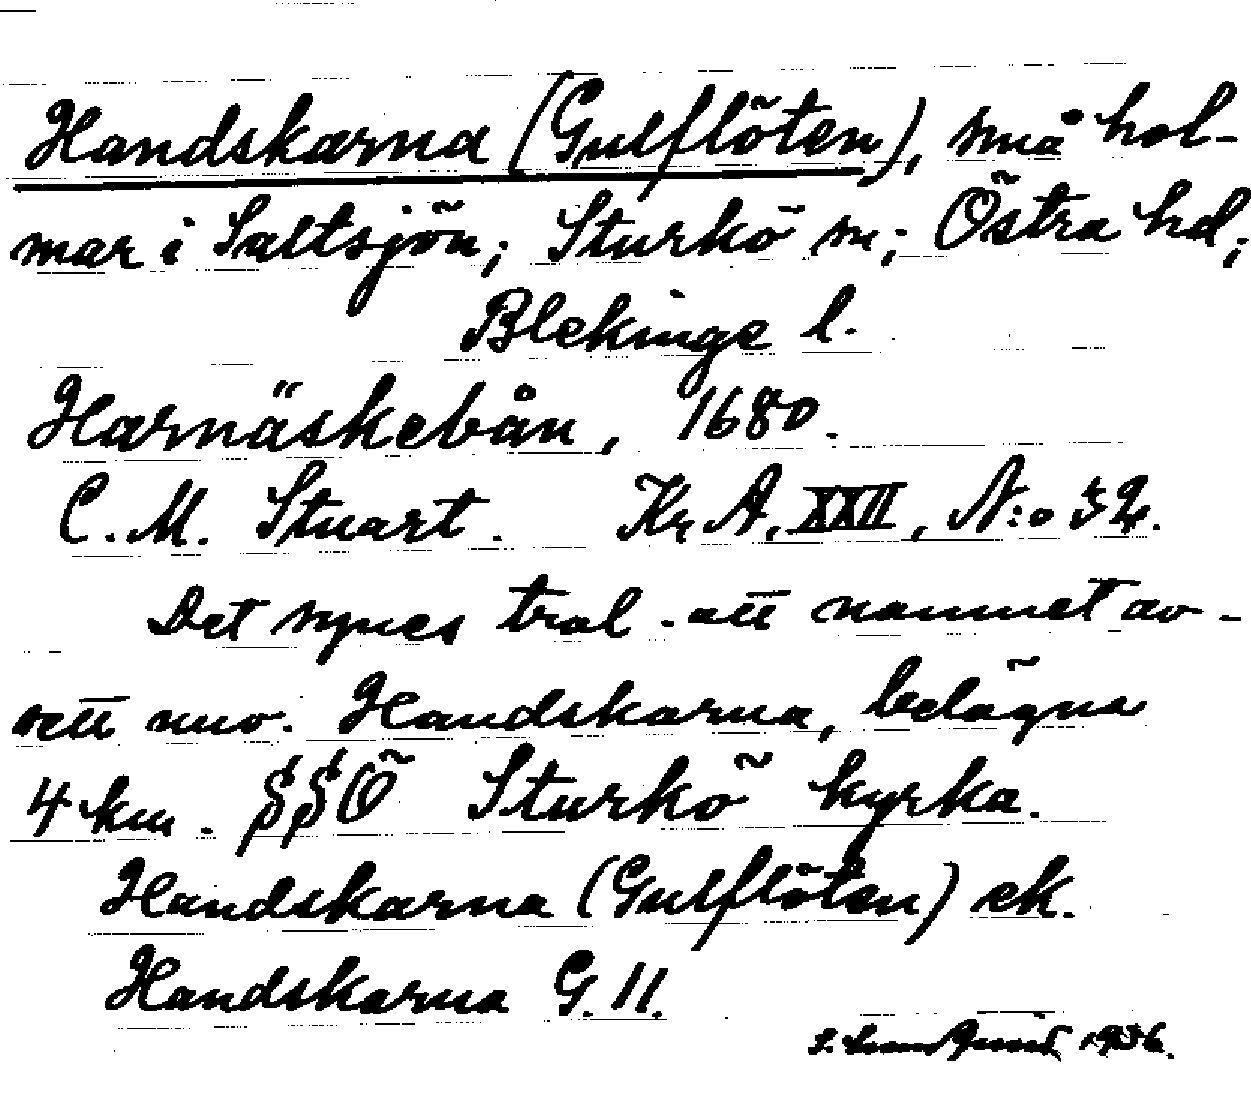 Handskarna (Gulflöten), små hol-
mar i Saltsjön; Sturkö sn; Östra hd;
Blekinge l.
Harnäskebån, 1680.
C. M. Stuart. Kr A, XXII, N:o 32.
Det synes trol. att namnet av-
sett nuv. Handskarna, belägna
4 km. SSÖ Sturkö kyrka.
Handskarna (Gulflöten) ek.
Handskarna G. 11.
1936.